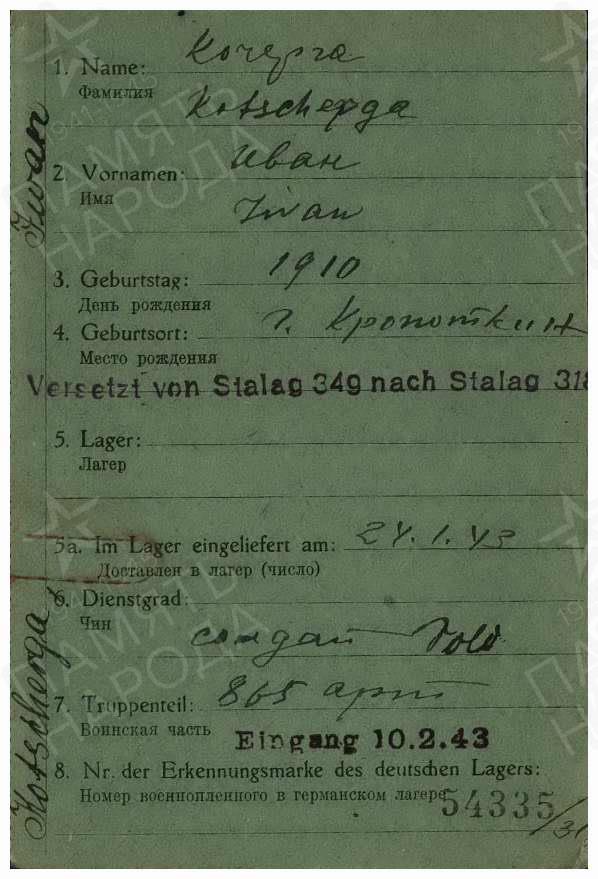 Кочерга
1. Name:
Фамилия
Kotscherga
Иван
2. Vornamen:
Имя
Iwan
3. Geburtstag: 1910
День рождения
4. Geburtsort: г. Кропоткин
Место рождения
Versetzt von Stalag 349 nach Stalag 318
5. Lager:
Лагер
5a. Im Lager eingeliefert am: 24.1.43
Доставлен в лагер (число)
6. Dienstgrad:
Чин
солдат Sold
7. Truppenteil: 865 арт
Воинская часть
Eingang 10.2.43
8. Nr. der Erkennungsmarke des deutschen Lagers:
Номер военнопленного в германском лагере
54335
Kotscherga Iwan
ПАМЯТЬ
НАРОДА